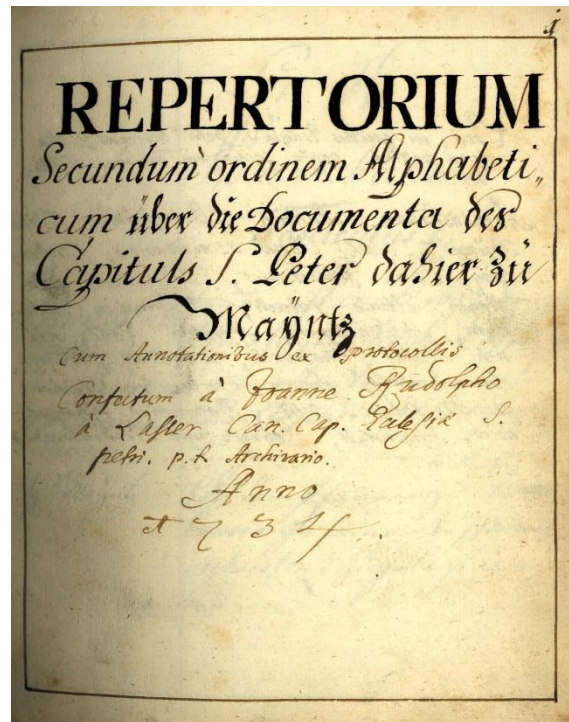 1
REPERTORIUM
Secundum ordinem Alphabeti„
cum über die Documenta des
Capituls S. Peter dahier zu
Mayntz
Cum Annotationibus ex protocollis
Confectum à Joanne Rudolpho
à Lasser Can. Cap. Eccles̄iæ S.
petri. p.t. Archivario.
Anno
1734